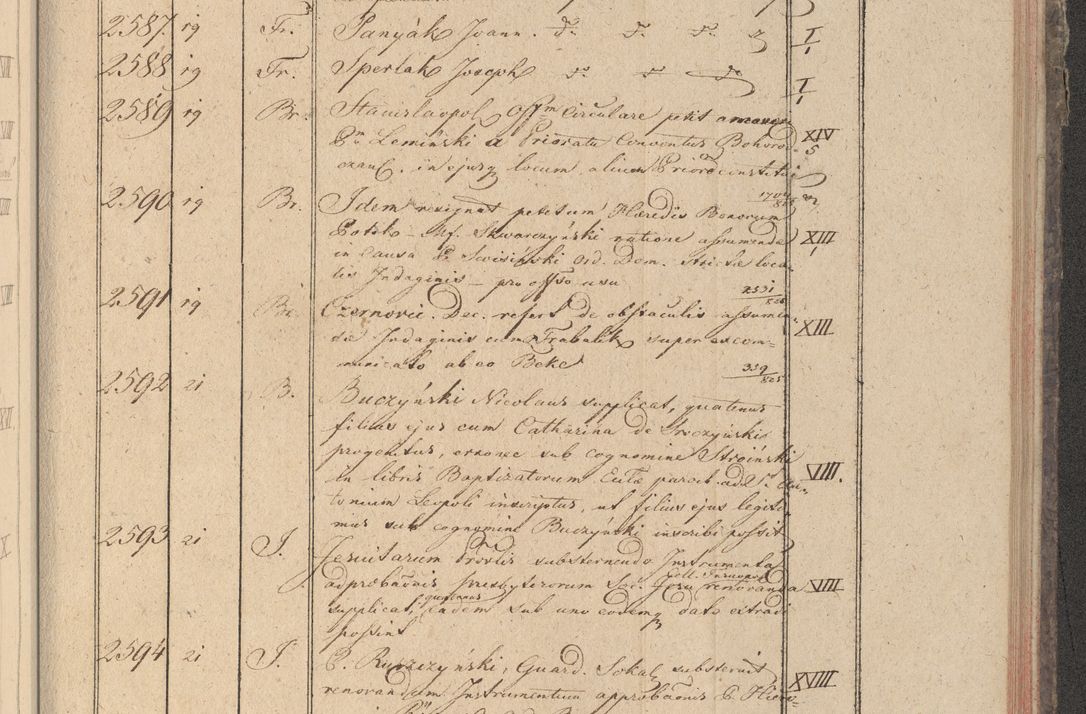 2587. 19 Fr. Panyák Joann. do. do. do. I/1
2588 19 Fr. Sperlak Joseph do. do. do. I/1
2589 19 Br. Stanislaopol. Offm Circulare petit amoveri
Pm Lemiński a Prioratu Conventus Bohorod- XIV/5
czan. in ejusq locum alium Priorem constitui
2590 19 Br. Idem resignat petitum Hæredis Bonorum
Potok Skwarczyński ratione assumenda XIII/1
in Causa P. Swisiński Ord. Dom. strictæ loca-
lis Indaginis pro offso usu 2531/825
2591 19 Br. Czernovic. Dec. refert de obstaculis assumen-
dæ Indaginis cum Trabalik super excom- XIII
municato ab eo Beke 339/825
2592 21 B. Buczyński Nicolaus supplicat, quatenus
filius ejus cum Catharina de Troczyńskie
progenitus, erronee sub cognomine Stroiński
in libris Baptizatorum Eccæ paroch. ad S. An- VIII.
tonium Leopoli inscriptus, ut filius ejus legiti-
mus sub cognomine Buczyński inscribi possit
2593 21 J. Jesuitarum substernendo Instrumenta
adprobaonis Presbyterorum Soc. Jesu renovanda VIII
Coll. Tarnopol.
supplicat, quatenus eadem sub uno eodemq dato extradi
possint
2594 21 J. P. Guard. Sokal. substernit
renovandum Instrumentum approbaonis P. Hiero- XVIII